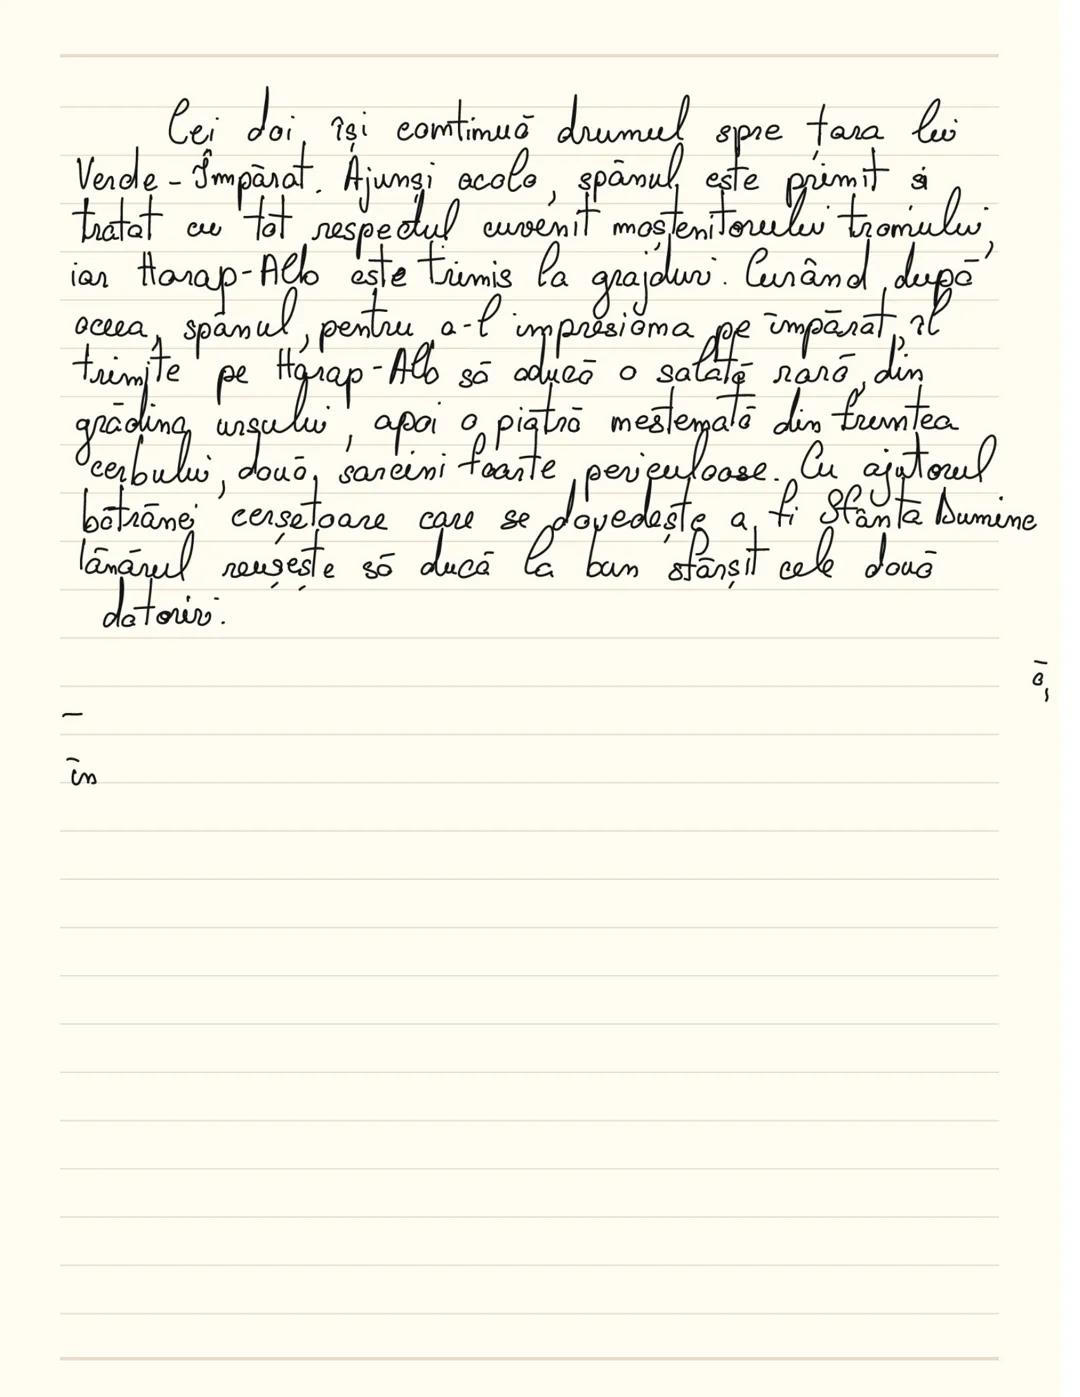 Cei doi își continuă drumul spre țara lui
Verde-Împărat. Ajunși acolo, spânul este primit și
tratat cu tot respectul cuvenit moștenitorului tronului,
iar Harap-Alb este trimis la grajduri. Curând după
aceea, spânul, pentru a-l impresiona pe împărat, îl
trimite pe Harap-Alb să aducă o salată rară din
grădina ursului, apoi o piatră nestemată din fruntea
cerbului, două sarcini foarte periculoase. Cu ajutorul
bătrânei cerșetoare care se dovedește a fi Sfânta Dumine
tânărul reușește să ducă la bun sfârșit cele două
datorii.
în